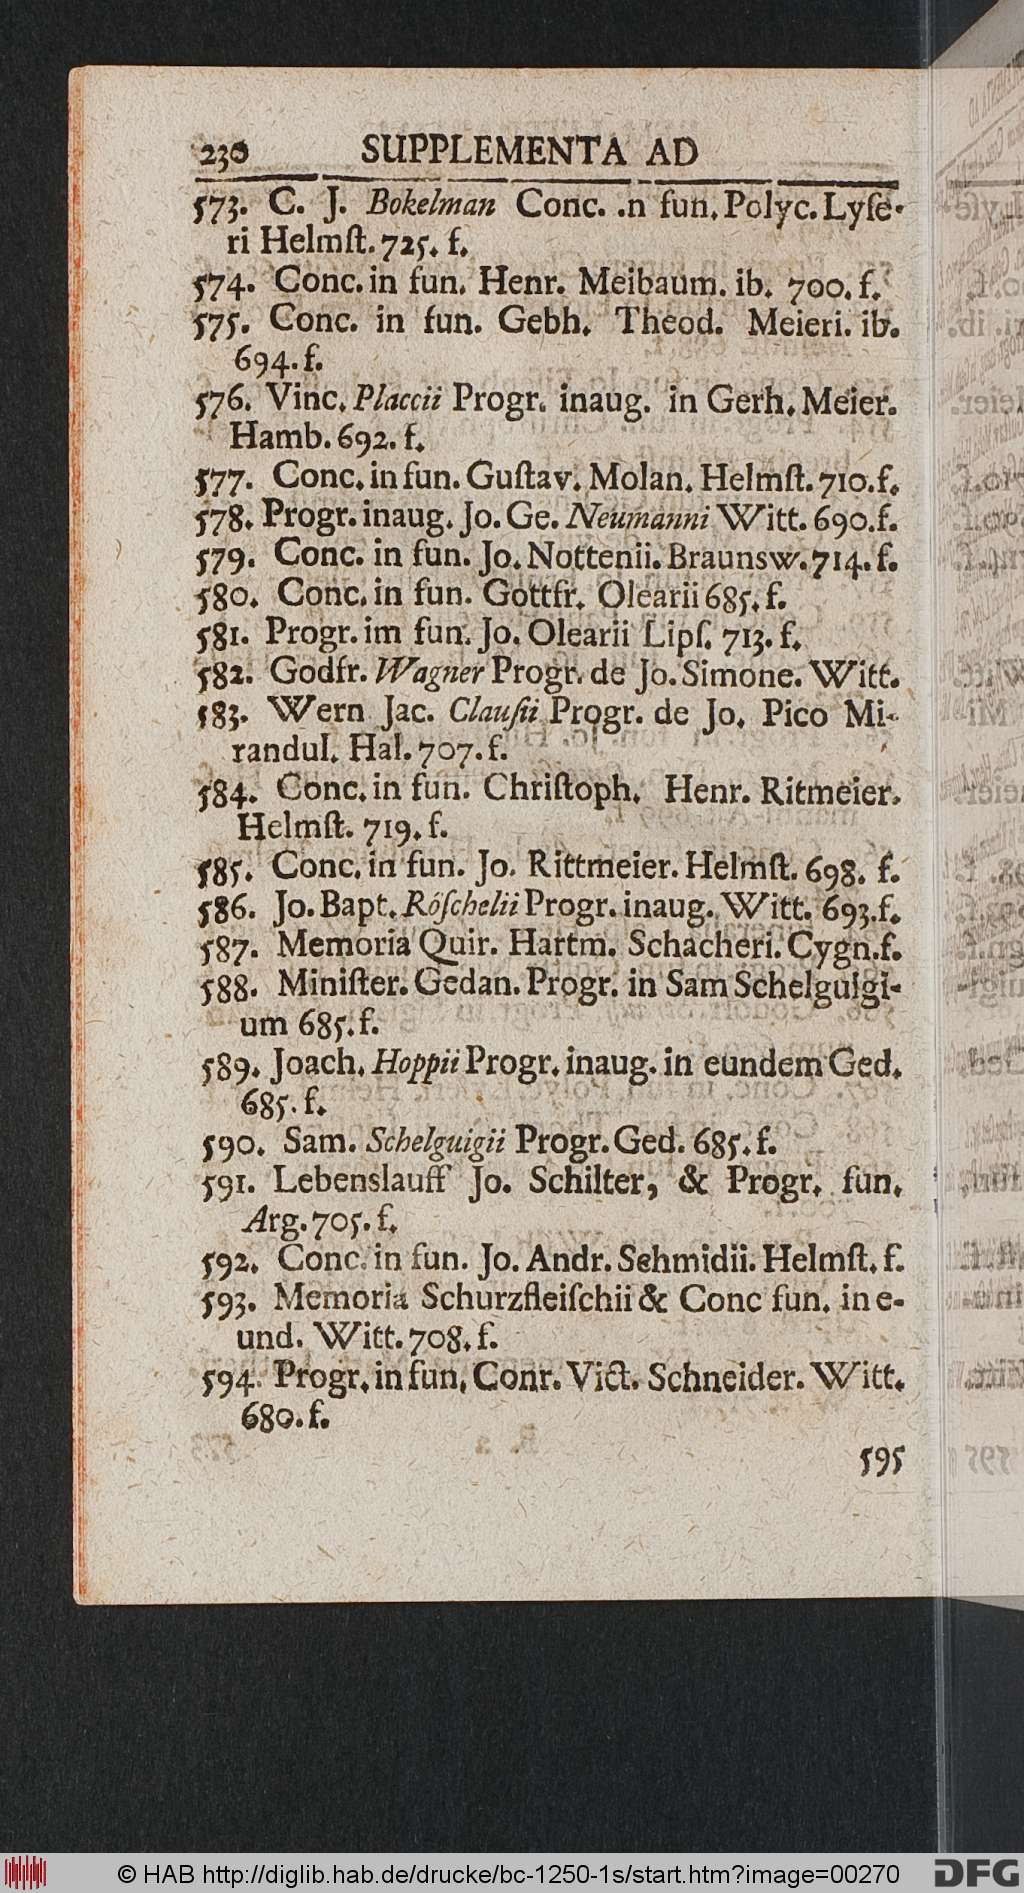 230 SUPPLEMENTA AD
573. C. J. Bokelman Conc. .n fun. Polyc. Lyſe-
ri Helmſt. 725. f.
574. Conc. in fun. Henr. Meibaum. ib. 700. f.
575. Conc. in fun. Gebh. Theod. Meieri. ib.
694. f.
576. Vinc. Placcii Progr. inaug. in Gerh. Meier.
Hamb. 692. f.
577. Conc. in fun. Guſtav. Molan. Helmſt. 710. f.
578. Progr. inaug. Jo. Ge. Neumanni Witt. 690. f.
579. Conc. in fun. Jo. Nottenii. Braunsw. 714. f.
580. Conc. in fun. Gottfr. Olearii 685. f.
581. Progr. im fun. Jo. Olearii Lipſ. 713. f.
582. Godfr. Wagner Progr. de Jo. Simone. Witt.
583. Wern Jac. Clauſii Progr. de Jo. Pico Mi-
randul. Hal. 707. f.
584. Conc. in fun. Chriſtoph. Henr. Ritmeier.
Helmſt. 719. f.
585. Conc. in fun. Jo. Rittmeier. Helmſt. 698. f.
586. Jo. Bapt. Röſchelii Progr. inaug. Witt. 693. f.
587. Memoria Quir. Hartm. Schacheri. Cygn. f.
588. Miniſter. Gedan. Progr. in Sam Schelguigi-
um 685. f.
589. Joach. Hoppii Progr. inaug. in eundem Ged.
685. f.
590. Sam. Schelguigii Progr. Ged. 685. f.
591. Lebenslauff Jo. Schilter, & Progr. fun.
Arg. 705. f.
592. Conc. in fun. Jo. Andr. Schmidii. Helmſt. f.
593. Memoria Schurzfleiſchii & Conc fun. in e-
und. Witt. 708. f.
594. Progr. in fun. Conr. Vict. Schneider. Witt.
680. f.
595
© HAB http://diglib.hab.de/drucke/bc-1250-1s/start.htm?image=00270 DFG